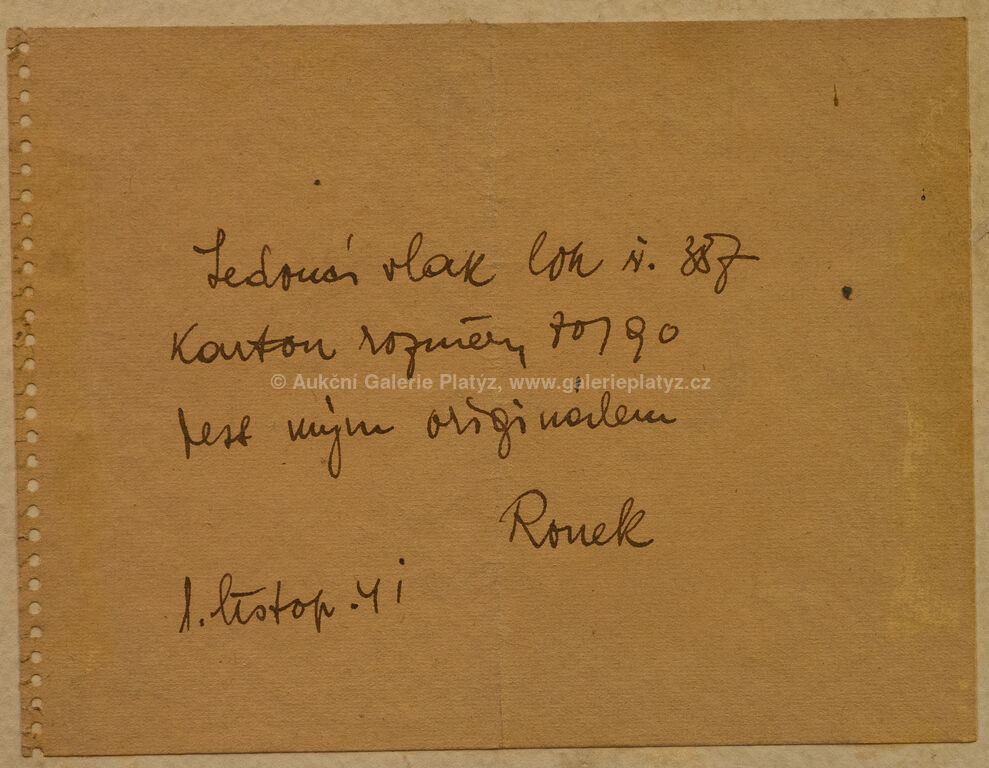 Jedoucí vlak lok ř. 387
Karton rozměry 70/90
© Aukční Galerie Platýz, www.galerieplatyz.cz
jest mým originálem
Ronek
1. listop. 41